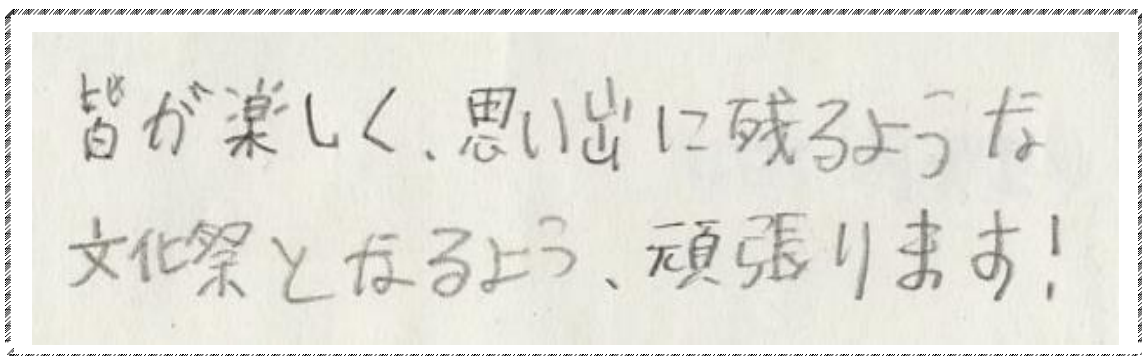 皆が楽しく、思い出に残るような
文化祭となるよう、頑張ります!